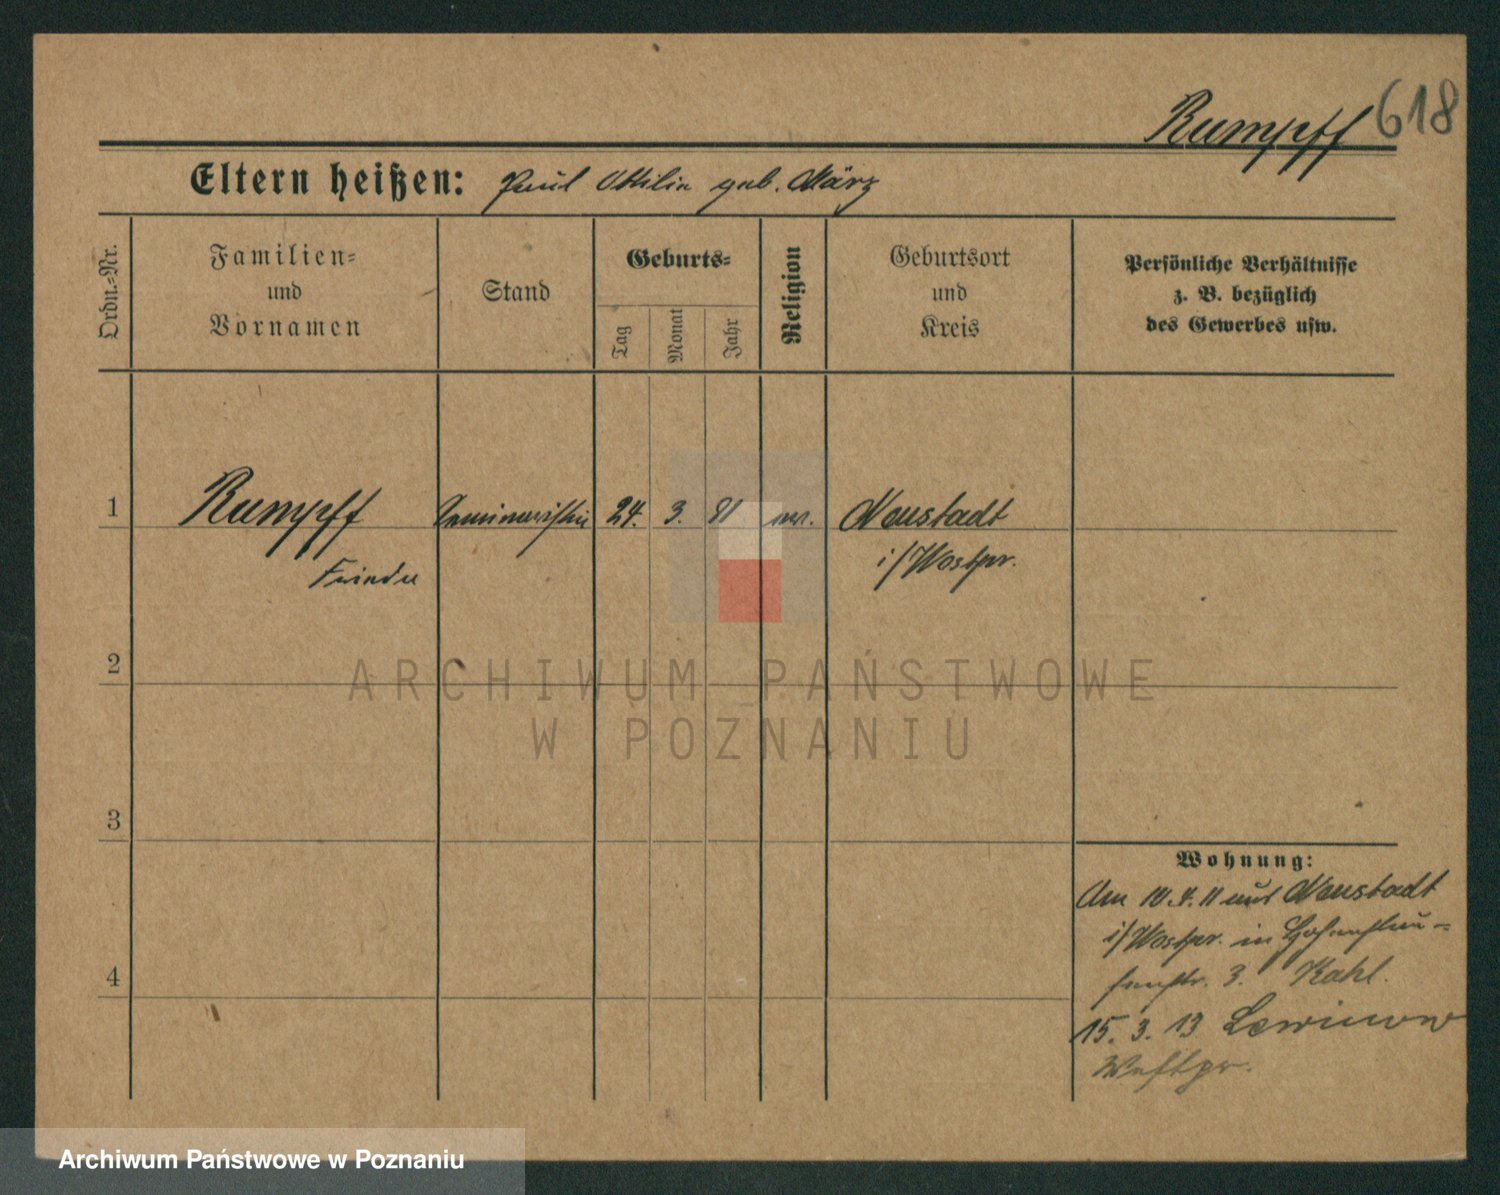 Rumpff 618
Eltern heißen: Paul Ottilie geb. März
Ordn.-Nr.
Familien-
und
Vornamen
Stand
Geburts-
Tag
Monat
Jahr
Religion
Geburtsort
und
Kreis
Persönliche Verhältnisse
z. B. bezüglich
des Gewerbes usw.
1 Rumpff Seminaristin 24. 3. 81 ev. Neustadt
Frieda i/Westpr.
2
3
4
Wohnung:
Am 10.4.11 aus Neustadt
i/Westpr. in
3. Kahl.
15. 3. 13
Westpr.
ARCHIWUM PAŃSTWOWE
W POZNANIU
Archiwum Państwowe w Poznaniu